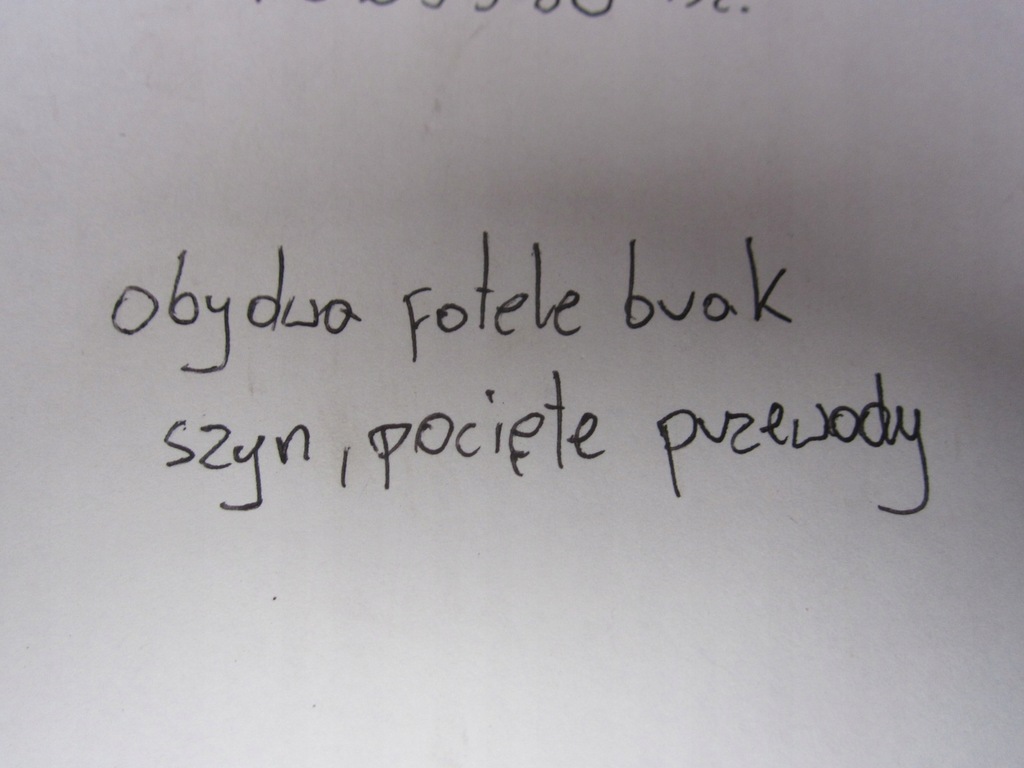 obydwa fotele brak
szyn, pocięte przewody